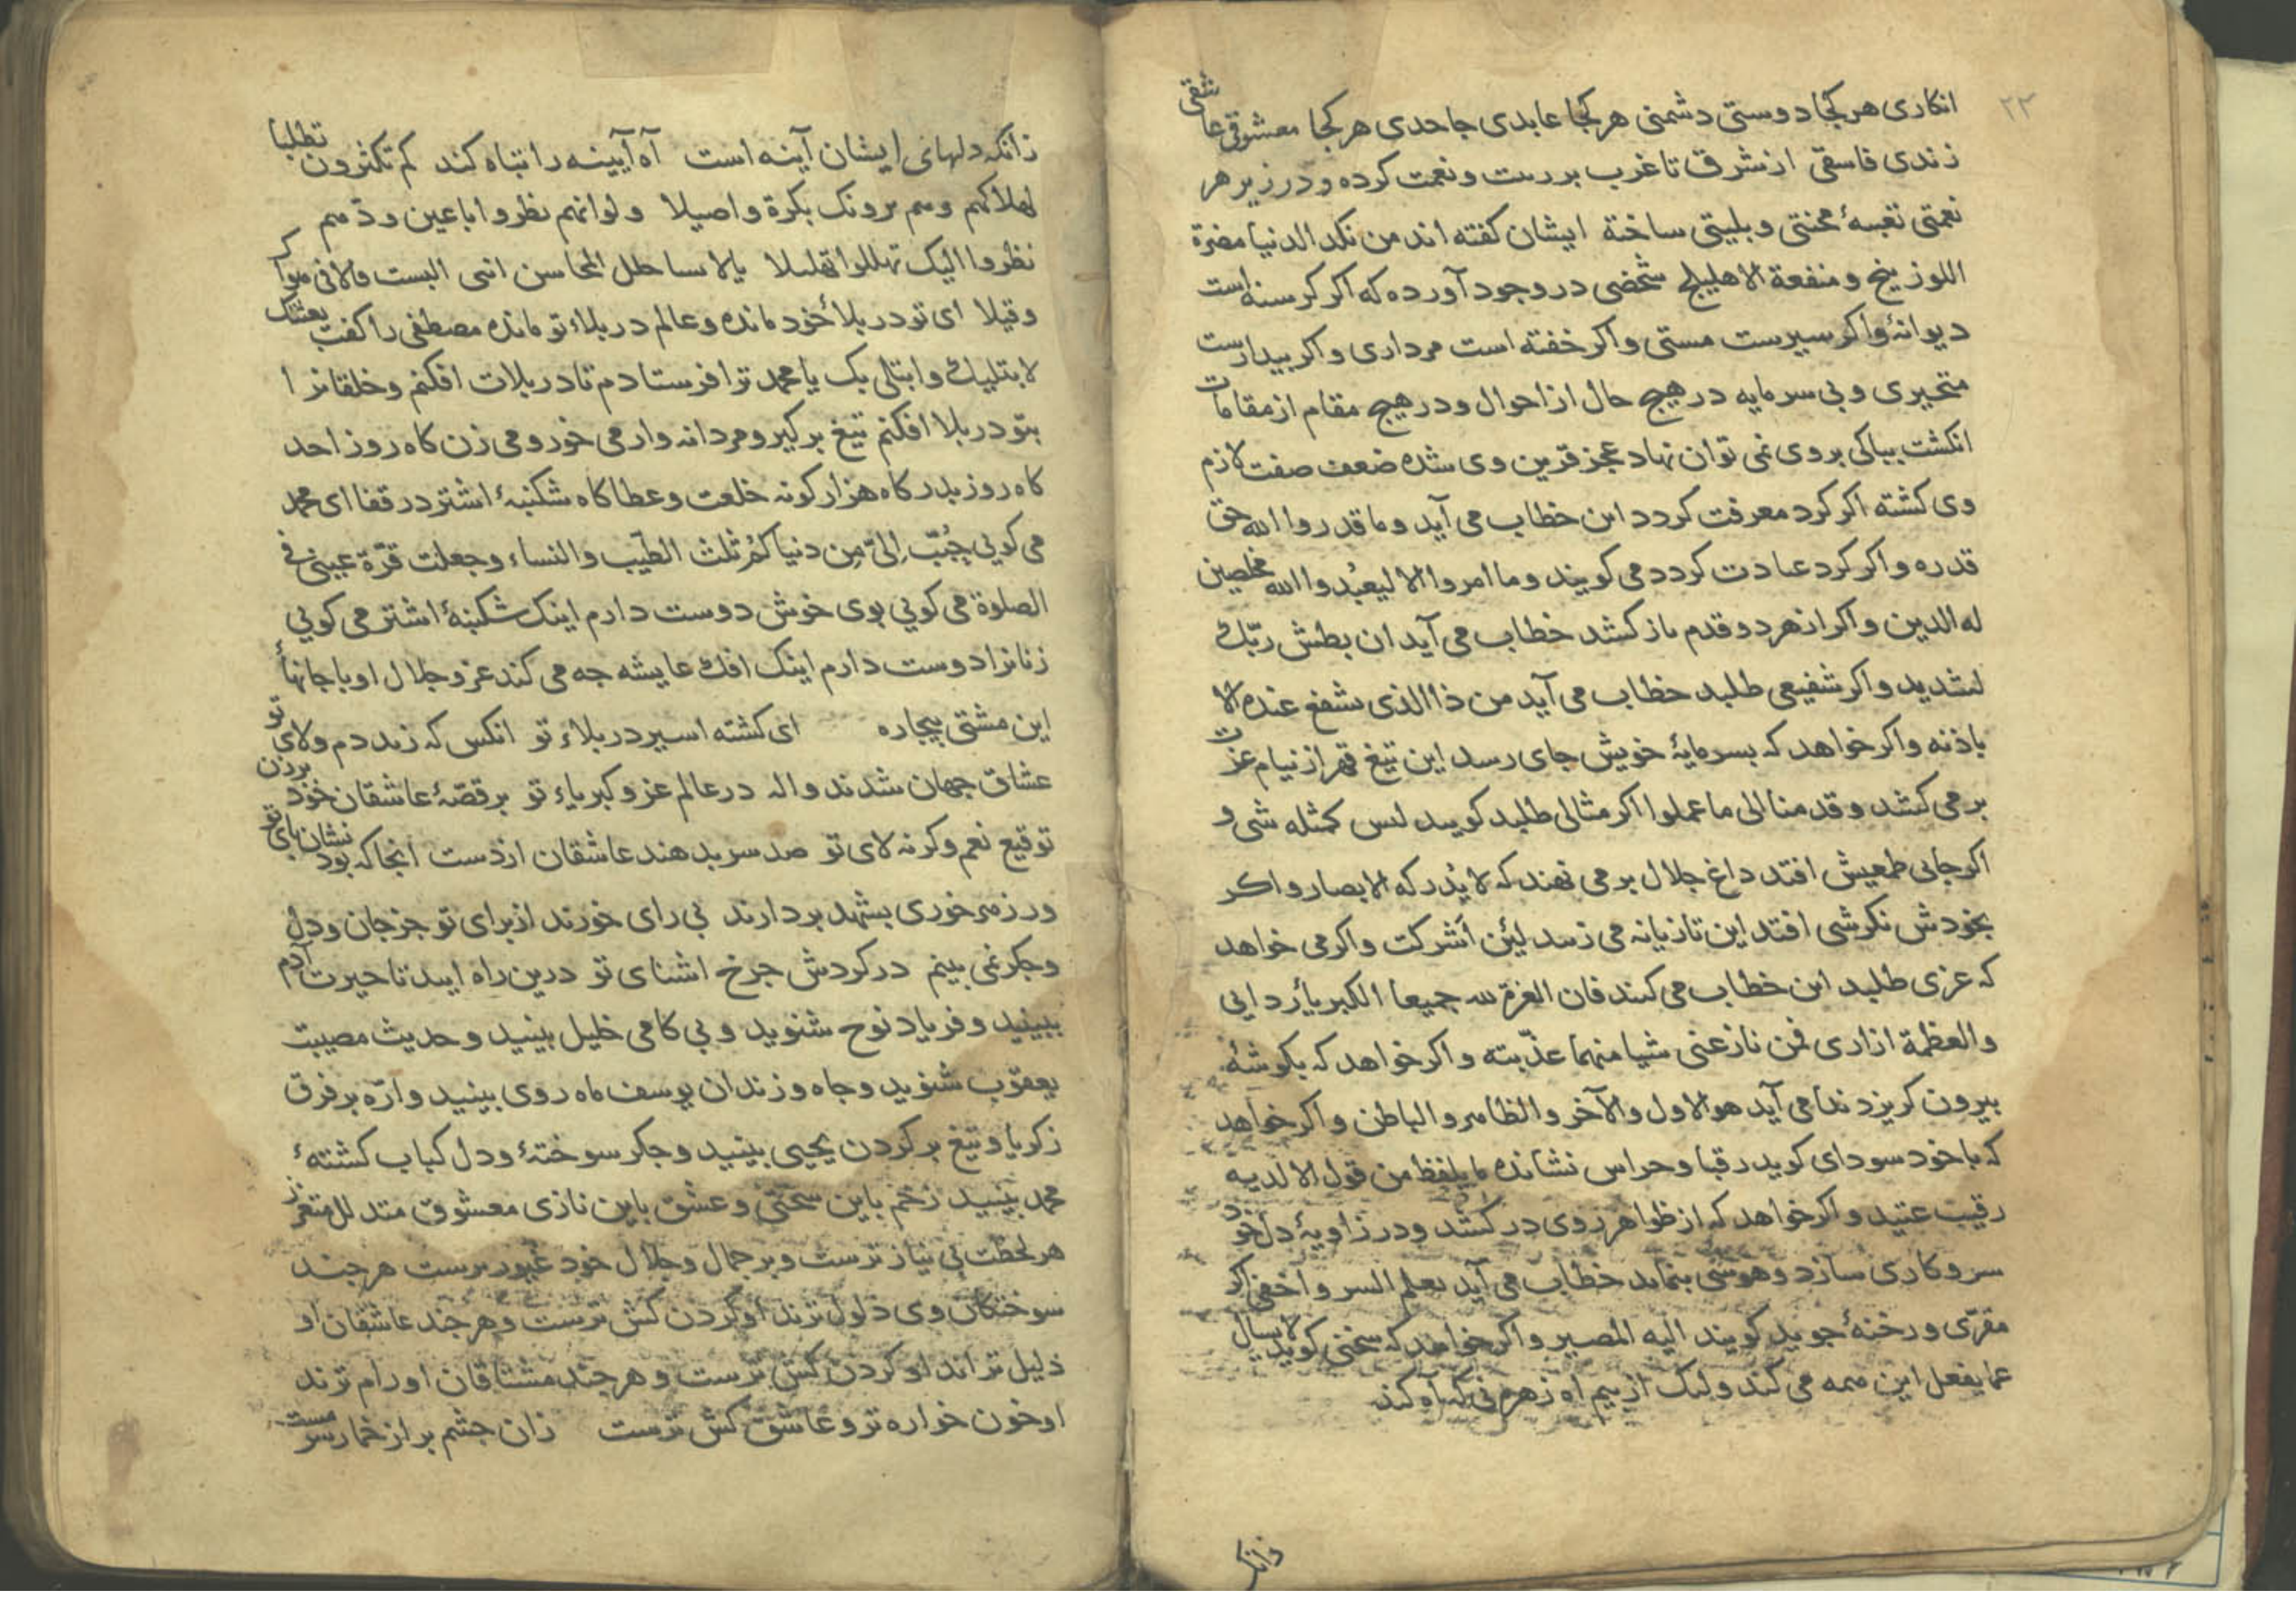 ۲۳
انکاری هر کجا دوستی دشمنی هر کجا عابدی جاحدی هر کجا معشوقی عاشقی
زندی فاسقی از شرق تا غرب بر رست و نعمت کرده و در زیر هر
نعمتی تعبیهٔ محنتی و بلیتی ساخته ایشان کفته اند من نکد الدنیا مضرة
اللوزینج و منفعة الاهلیلج شخصی در وجود آورده که اکر کرسنه است
دیوانهٔ و اکر سیرست مستی و اکر خفته است مرداری و اکر بیدارست
متحیری و بی سرمایه در هیچ حال از احوال و در هیچ مقام از مقامات
انکشت بباکی بر وی نمی توان نهاد عجز قرین وی شده ضعف صفت لازم
وی کشته اکر کرد معرفت کردد این خطاب می آید و ما قدروا الله حق
قدره و اکر کرد عبادت کردد می کویند و ما امروا الا لیعبدوا الله مخلصین
له الدین و اکر از هر دو قدم باز کشد خطاب می آید ان بطش ربّک
لشدید و اکر شفیعی طلبد خطاب می آید من ذا الذی یشفع عنده الا
باذنه و اکر خواهد که بسرمایهٔ خویش جای رسد این تیغ قهر از نیام عزت
بر می کشد و قدمنا الی ما عملوا اکر مثالی طلبد کویند لیس کمثله شی و
اکر جایی طمعیش افتد داغ جلال بر می نهند که لا یُدرکه الابصار و اکر
بخودش نکرشی افتد این تازیانه می زند لئن اشرکت و اکر می خواهد
که عزی طلبد این خطاب می کنند فان العزة لله جمیعا الکبریاء ردایی
والعظمة ازاری فمن نازعنی شیا منهما عذّبته و اکر خواهد که بکوشهٔ
بیرون کریزد ندا می آید هو الاول والآخر والظاهر والباطن و اکر خواهد
که با خود سودای کوید رقبا و حراس نشانده ما یلفظ من قول الا لدیه
رقیب عتید و اکر خواهد که از ظواهر روی در کشد و در زاویهٔ دل خود
سر و کاری سازد و هوشی بنماید خطاب می آید یعلم السر و اخفی اکر
مقرّی و رخنهٔ جوید کویند الیه المصیر و اکر خواهد که سخنی کوید لا یسال
عما یفعل این همه می کند ولیک از بیم آه زهره نی که آه کند
زانکه
زانکه دلهای ایشان آینه است آه آیینه را تباه کند کم تکثرون تطلبا
لهلاکهم وهم یرونک بکرة واصیلا ولو انهم نظروا باعین ودهم
نظروا الیک تهللوا تهلیلا یالابسا حلل المحاسن اننی البست
وقیلا ای تو در بلاء خود مانده و عالم در بلاء تو مانده مصطفی را کفت بعثتک
لابتلیک وابتلی بک یا محمد ترا فرستادم تا در بلات افکنم و خلقانرا
بتو در بلا افکنم تیغ برکیر و مردانه وار می خور و می زن کاه روز احد
کاه روز بدر کاه هزار کونه خلعت و عطا کاه شکنبهٔ اشتر در قفا ای محمد
می کویی حُبّب اِلیّ مِن دنیاکم ثلث الطیب والنساء وجعلت قرّة عینی فی
الصلوة می کویی بوی خوش دوست دارم اینک شکنبهٔ اشتر می کویی
زنانرا دوست دارم اینک افک عایشه جه می کند عز و جلال او با جانهاء
این مشتی بیجاره ای کشته اسیر در بلاء تو انکس که زند دم ولای تو
عشاق جهان شدند واله در عالم عز و کبریاء تو بر قصّهٔ عاشقان خود بر زن
توقیع نعم و کرنه لای تو صد سر بدهند عاشقان از دست انجا که بود نشان پای تو
ور زهر خوری بشهد بردارند بی رای خورند از برای تو جز جان و دل
و جکر نمی بینم در کردش جرخ اشنای تو درین راه ایید تا حیرت آدم
ببینید و فریاد نوح شنوید و بی کامی خلیل بینید و حدیث مصیبت
یعقوب شنوید و جاه و زندان یوسف ماه روی بینید و ارّه بر فرق
زکریا و تیغ بر کردن یحیی بینید و جکر سوختهٔ و دل کباب کشتهٔ
محمد بینید زخم باین سختی و عشق باین نازی معشوق متدلل متعزز
هر لحظت بی نیاز ترست و بر جمال و جلال خود غیورترست هر جند
سوختکان وی ذلول ترند او کردن کش ترست و هر جند عاشقان او
ذلیل تر اند او کردن کش ترست و هر جند مشتاقان او رام ترند
او خون خواره تر و عاشق کش ترست زان جشم بر از خمار سرمست